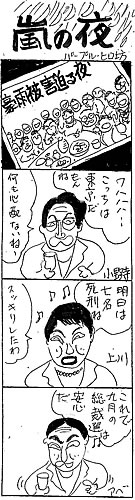 嵐の夜
パープル・ヒロ
豪雨被害迫る夜
ワハハー
こっちは
東京だ
もん
ね
何も心配ないね
小野寺
明日は
七名
死刑ね
スッキリしたわ
上川
これで
九月の
総裁選は
安心
だ
アベ